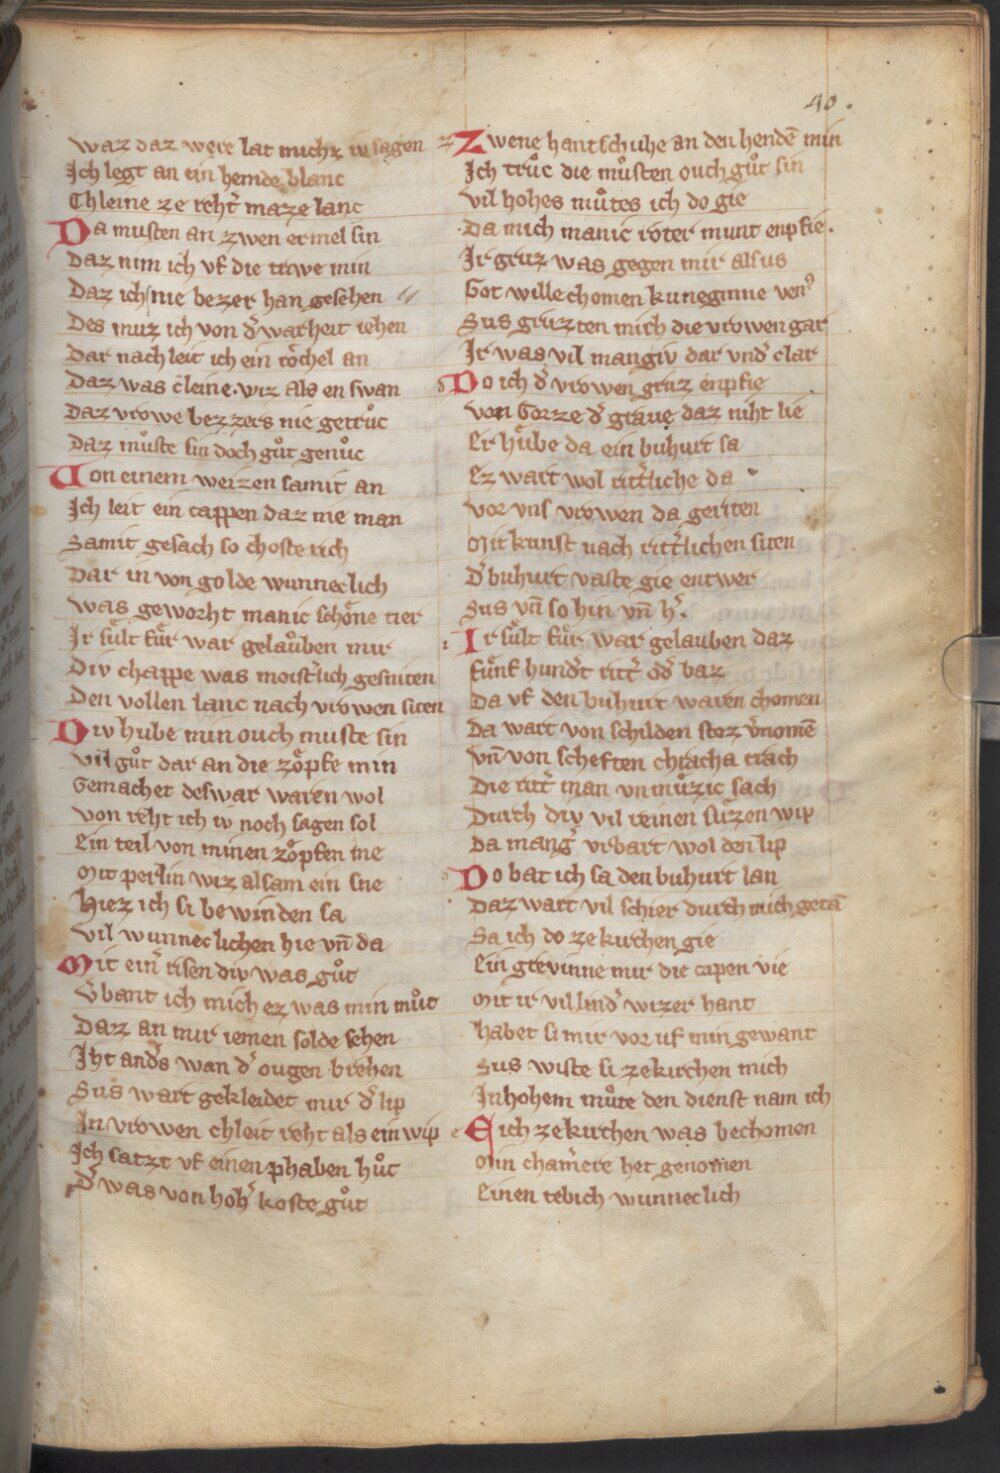 40.
waz daz were lat michz iu sagen
Ich legt an ein hemde blanc
Chleine ze reht maze lanc
Da musten an zwen ermel sin
Daz nim ich vf die trwe min
Daz ich nie bezer han gesehen
Des muz ich von d̾ warheit iehen
Dar nach leit ich ein rͤochel an
Daz was cleine. wiz als en swan
Daz vrowe bezzers nie getrůc
Daz můste sin doch gůt genůc
Von einem weizen samit an
Ich leit ein cappen daz nie man
Samit gesach so choste rich
Dar in von golde wunneclich
was geworht manic schͦone tier
Ir sult fur war gelauben mir
Div chappe was moistlich gesniten
Den vollen lanc nach vrowen siten
Div hube min ouch muste sin
Vil gůt dar an die zͦopfe min
Gemachet deswar waren wol
von reht ich iv noch sagen sol
Ein teil von minen zͦopfen me
Mit perlin wiz alsam ein sne
Hiez ich si bewinden sa
Vil wunneclichen hie vn̄ da
Mit ein̾ risen div was gůt
V̾bant ich mich ez was min můt
Daz an mir iemen solde sehen
Iht and̾s wan d̾ ougen brehen
Sus wart gekleidet mir d̾ lip
In vrowen chleit reht als ein wip
Ich satzt vf einen phaben hůt
D̾ was von hoh̾ koste gůt
Zwene hantschuhe an den hendē min
Ich trůc die můsten ouch gůt sin
Vil hohes můtes ich do gie
Da mich manic roter munt enpfie.
Ir gruz was gegen mir alsus
Got willechomen kuneginne ven᾿
Sus gruzten mich die vrowen gar
Ir was vil mangiv clar vnd̾ clar
Do ich d̾ vrowen gruz enpfie
von Gorze d̾ graue daz niht lie
Er hube da ein buhurt sa
Ez wart wol ritt̾liche da
vor vns vrowen da geriten
Mit kunst nach ritt̾lichen siten
D̾ buhurt vaste gie entwer
Sus vn̄ so hin vn̄ h̾.
Ir sult fur war gelauben daz
funf hund̾t ritt̾ od̾ baz
Da vf den buhurt waren chomen
Da wart von schilden stoz v̾nomē
Vn̄ von scheften chracha crach
Die ritt̾ man vnmůzic sach
Durch div vil reinen suzen wip
Da mang̾ vrbart wol den lip
Do bat ich sa den buhurt lan
Daz wart vil schier durch mich getā
Sa ich do ze kirchen gie
Ein grevinne mir die capen vie
Mit ir vil lind̾ wizer hant
Habet si mir vor uf min gewant
Sus wiste si ze kirchen mich
In hohem můte den dienst nam ich
E ich ze kirchen was bechomen
Min cham̾ere het genomen
Einen tebich wunneclich